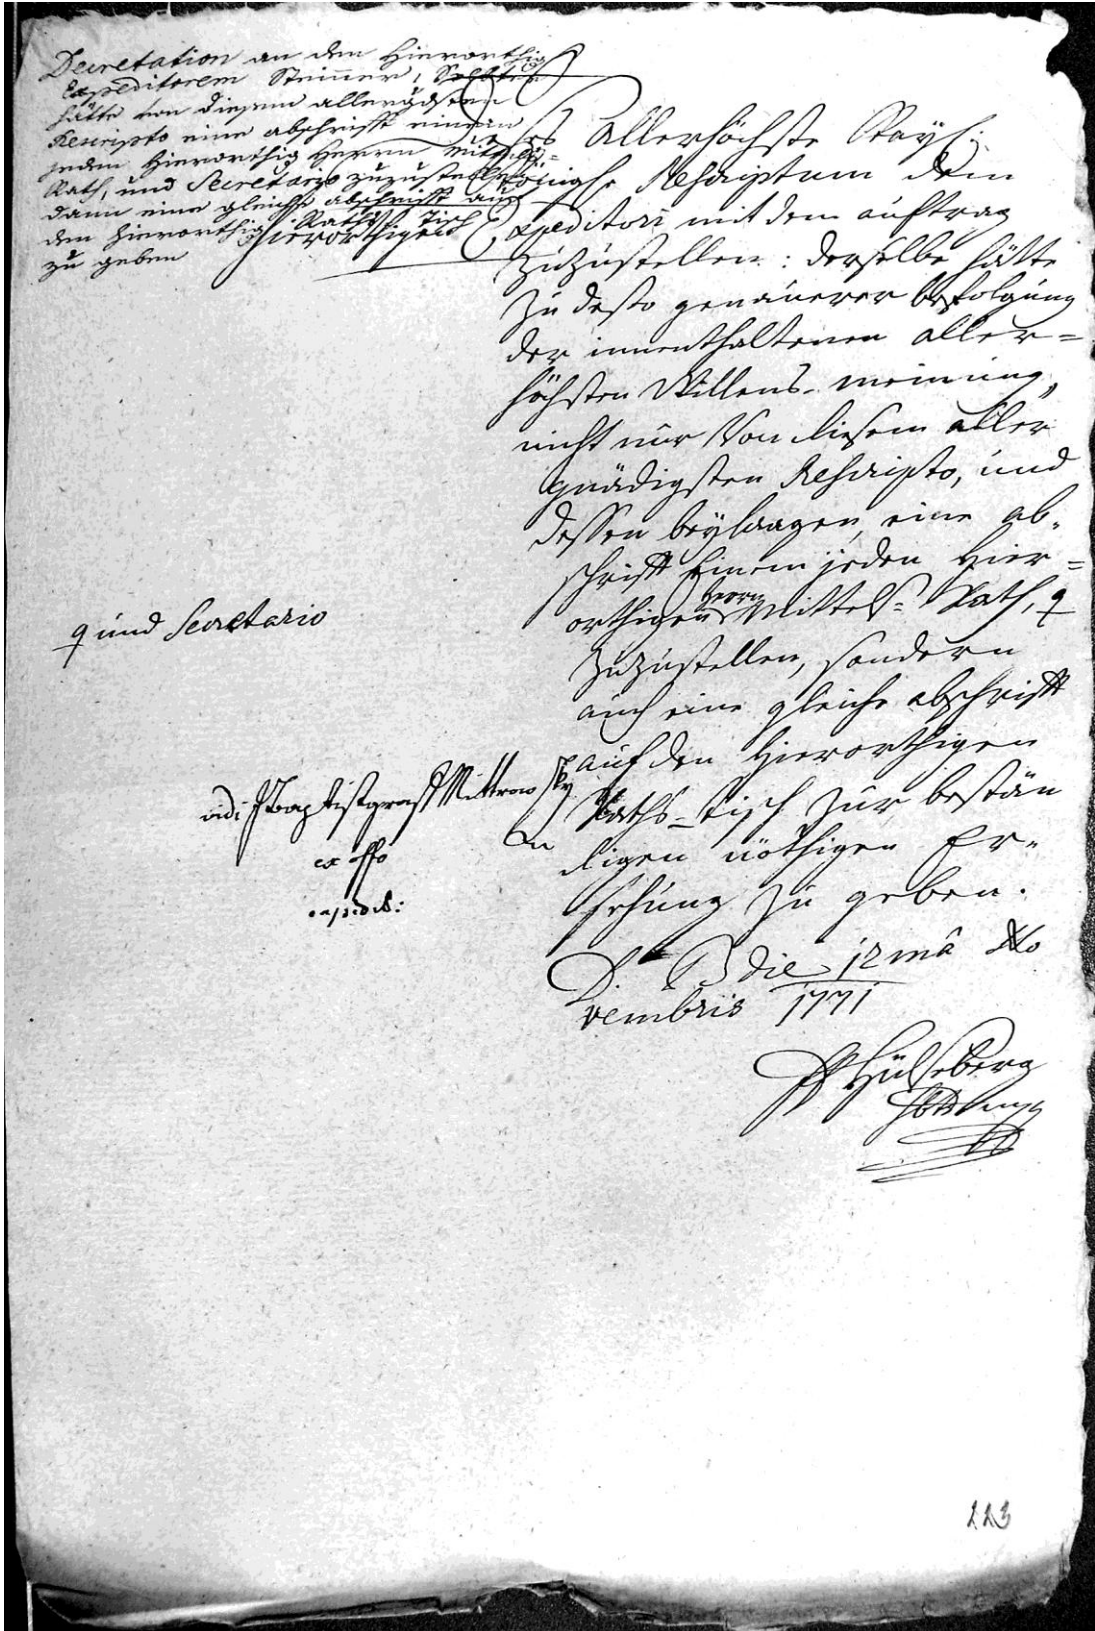 Decretation an den Hierorthig
Expeditorem Steiner,
hätte von diesem allergdsten
Rescripto eine abschrifft einem
jeden Hierorthig Herrn Mittels=
Rath, und Secretario zuzustellen,
dann eine gleiche abschrifft auf
den Hierorthig Raths Tisch
zu geben
hierorthigen
allerhöchste Kayl:
Königl: Rescriptum dem
Expeditori mit dem auftrag
zuzustellen: derselbe hätte
zu desto genauerer befolgung
der innenthaltenen aller=
höchsten Willens-meinung,
nicht nur von diesem aller
gnädigsten Rescripto, und
dessen beylaagen, eine ab-
schrifft Einem jeden Hier=
orthigen Herrn Mittels=Rath, ꝗ
ꝗ und Secretario
zuzustellen, sondern
auch eine gleiche abschrifft
auf den Hierorthigen
Raths-tisch zur bestän
digen nöthigen Er-
sehung zu geben.
vidi JBaptist graf Mittrowsky
ex offo
expedit:
die 12mâ No
vembris 1771
Hülseberg
223